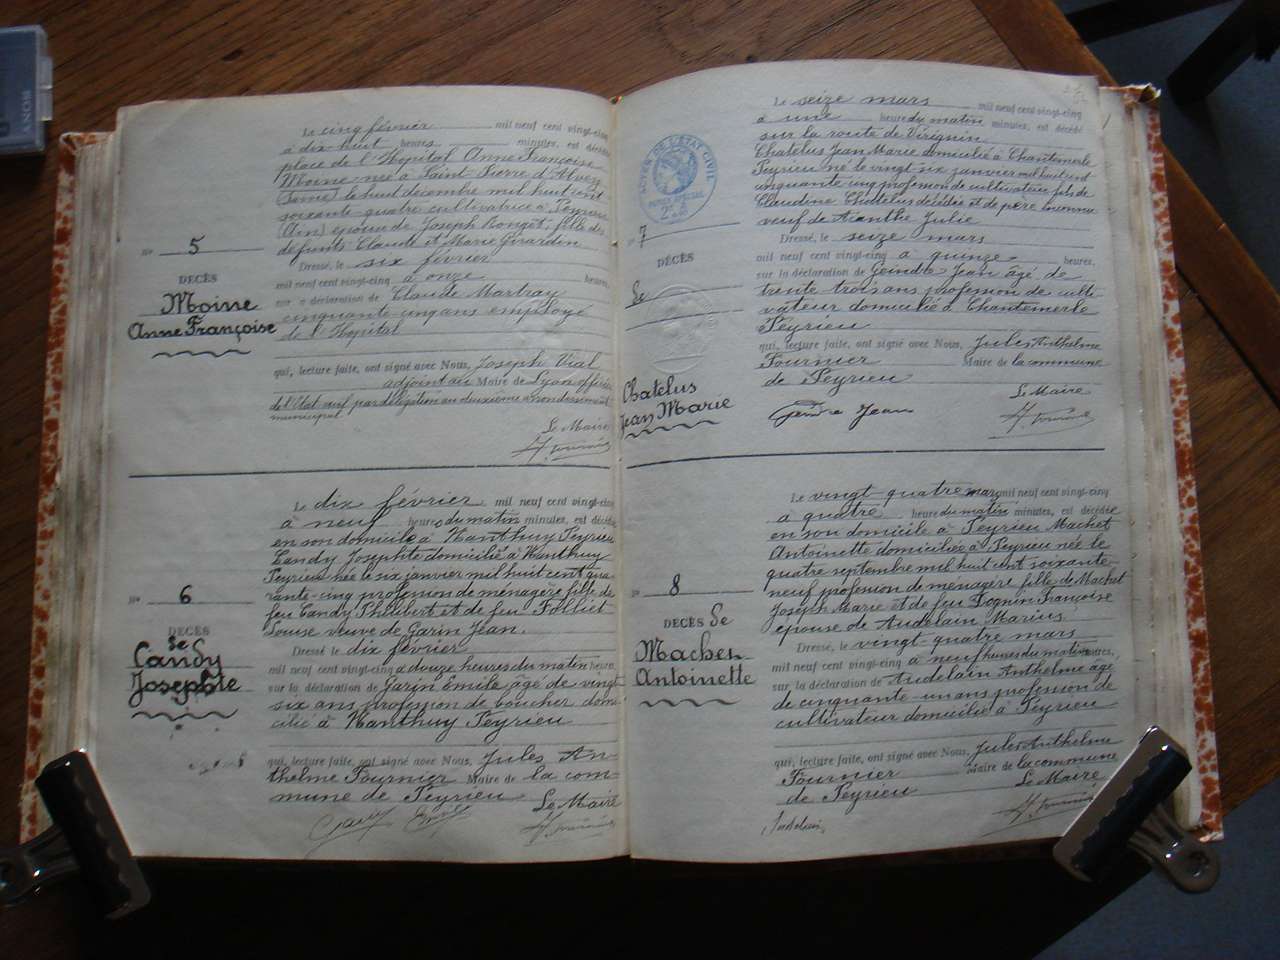 Le cinq février mil neuf cent vingt-cinq
à dix huit heures minutes, est décédée
place de l'Hopital Anne Françoise
Moine née à Saint Pierre d'Albigny
le huit décembre mil huit cent
soixante quatre cultivatrice à Peyrieu
(Ain) epouse de Joseph fille des
défunts Claude et Marie Girardin
Dressé, le six février
mil neuf cent vingt-cinq à onze heures,
sur la déclaration de Claude Martray
cinquante cinq ans employé
de l'Hopital
qui, lecture faite, ont signé avec Nous, Joseph Vial
adjoint au Maire de Lyon officier
de l'Etat civil par délégation au deuxième arrondissement
municipal
Le Maire
N° 5
DÉCÈS
Moine
Anne Françoise
Le dix février mil neuf cent vingt-cinq
à neuf heures du matin minutes, est décédée
en son domicile à Nanthuy Peyrieu
Candy Josephte domicilié à Nanthuy
Peyrieu née le six janvier mil huit cent qua
rante-cinq profession de ménagère fille de
feu Candy Philibert et de feu Folliet
Louise veuve de Garin Jean.
Dressé le dix février
mil neuf cent vingt-cinq à douze heures du matin heures,
sur la déclaration de Garin Emile âgé de vingt
six ans profession de boucher domi
cilié à Nanthuy Peyrieu
qui, lecture faite, ont signé avec Nous, Jules An-
thelme Fournier Maire de la com-
mune de Peyrieu
Le Maire
N° 6
DÉCÈS
de
Candy
Josephte
Le seize mars mil neuf cent vingt-cinq
à une heure du matin minutes, est décédé
sur la route de Virignin
Chatelus Jean Marie domicilié à Chantemerle
Peyrieu né le vingt six janvier mil huit cent
cinquante cinq profession de cultivateur fils de
Claudine Chatelus décédée et de père inconnu
veuf de Julie
Dressé, le seize mars
mil neuf cent vingt-cinq à quinze heures,
sur la déclaration de Gendre Jean âgé de
trente trois ans profession de culti
vateur domicilié à Chantemerle
Peyrieu
qui, lecture faite, ont signé avec Nous, Jules Anthelme
Fournier Maire de la commune
de Peyrieu
Le Maire
Gendre Jean
7
DÉCÈS
de
Chatelus
Jean Marie
PAPIER DE L'ÉTAT CIVIL
Le vingt quatre mars mil neuf cent vingt-cinq
à quatre heures du matin minutes, est décédée
en son domicile à Peyrieu Machet
Antoinette domiciliée à Peyrieu née le
quatre septembre mil huit cent soixante-
neuf profession de ménagère fille de Machet
Joseph Marie et de feu Françoise
epouse de Audelain Marius
Dressé, le vingt quatre mars
mil neuf cent vingt-cinq à neuf heures du matin heures,
sur la déclaration de Audelain Anthelme âgé
de cinquante un ans profession de
cultivateur domicilié à Peyrieu
qui, lecture faite, ont signé avec Nous, Jules Anthelme
Fournier Maire de la commune
de Peyrieu
Le Maire
8
DÉCÈS de
Machet
Antoinette
SONY